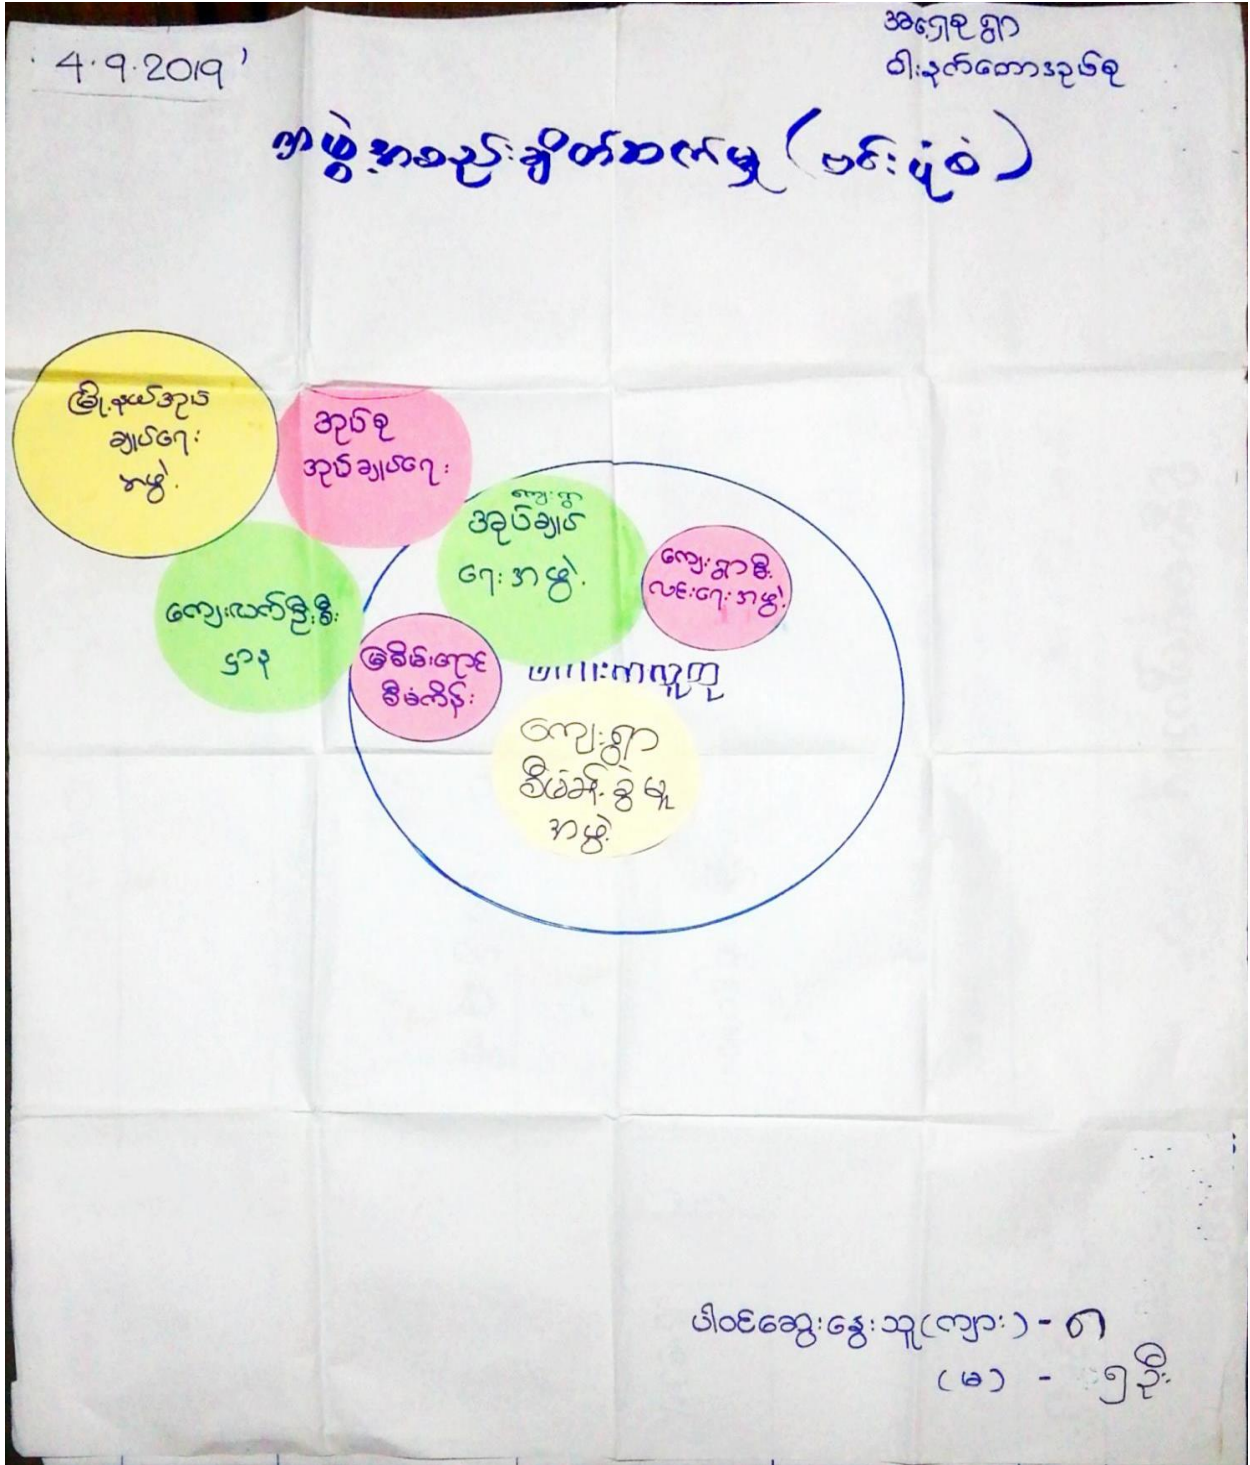 4.9.2019
အရှေ့စုရွာ
ဝါးနက်တောအုပ်စု
အဖွဲ့အစည်းချိတ်ဆက်မှု (ဗင်းပုံစံ)
မြို့နယ်အုပ်
ချုပ်ရေး
အဖွဲ့
အုပ်စု
အုပ်ချုပ်ရေး
ကျေးရွာ
အုပ်ချုပ်
ရေးအဖွဲ့
ကျေးရွာမီး
လင်းရေးအဖွဲ့
ကျေးလက်ဦးစီး
ဌာန
မြစိမ်းရောင်
စီမံကိန်း
ကျေးရွာ
စီမံခန့်ခွဲမှု
အဖွဲ့
ပါဝင်ဆွေးနွေးသူ(ကျား) - ၈
(မ) - ၅ဦး